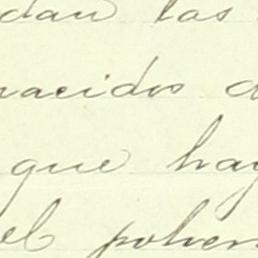 dan las
nacidos d
que hay
el polvor